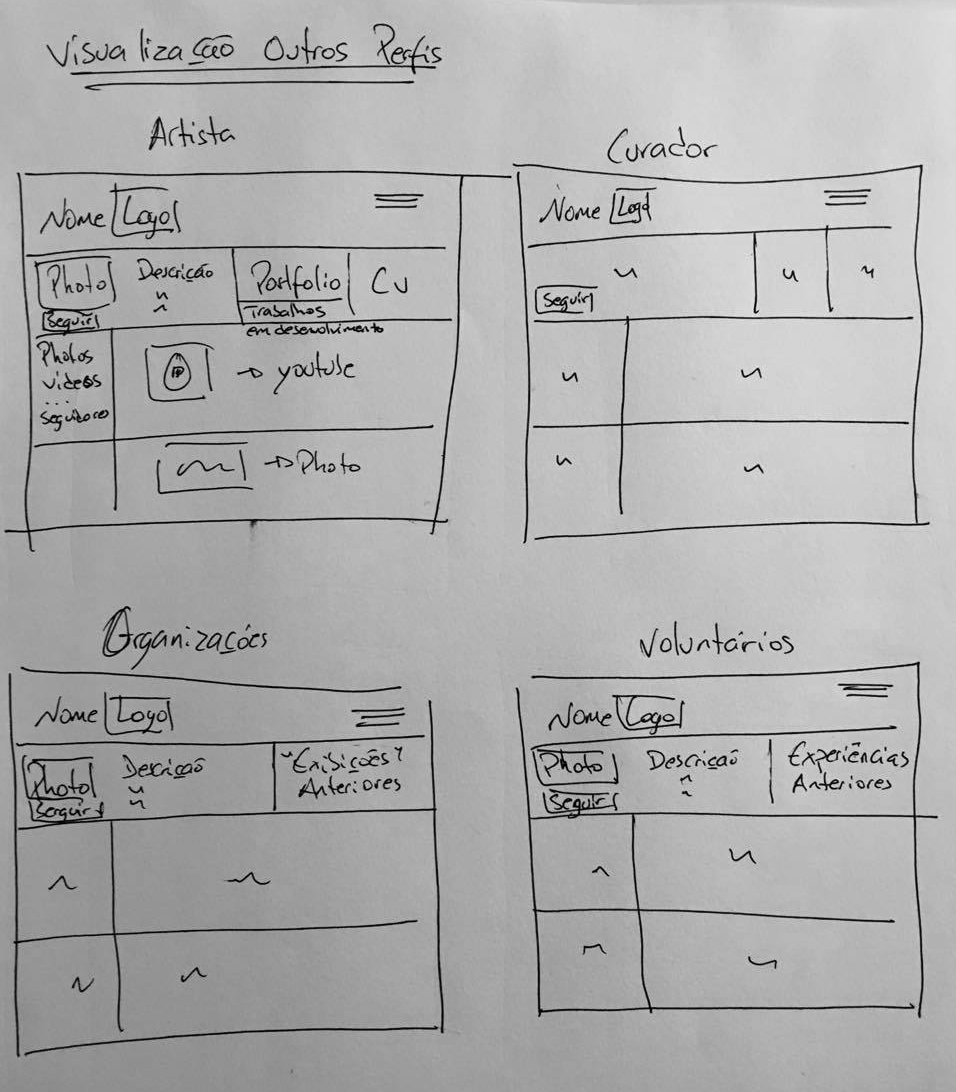 Visualização Outros Perfis
Artista
Nome Logo
Photo
Descrição
Portfolio
Cv
Seguir
Trabalhos
em desenvolvimento
Photos
videos
...
Seguidores
→ youtube
→ Photo
Curador
Nome Logo
Seguir
Organizações
Nome Logo
Photo
Descrição
"Exibições"
Anteriores
Serguir
Voluntários
Nome Logo
Photo
Descrição
Experiências
Anteriores
Seguir